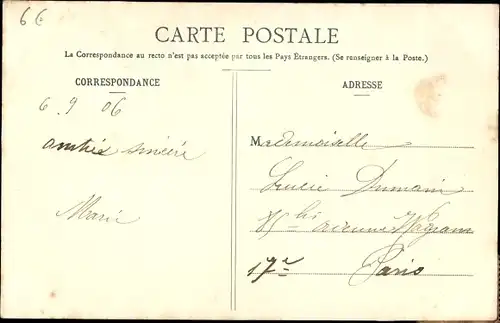 66
CARTE POSTALE
La Correspondance au recto n'est pas acceptée par tous les Pays Étrangers. (Se renseigner à la Poste.)
CORRESPONDANCE
ADRESSE
6 9 06
amitié sincère
Marie
Mademoiselle
Lucie Dumain
bis avenue Wagram
17e Paris